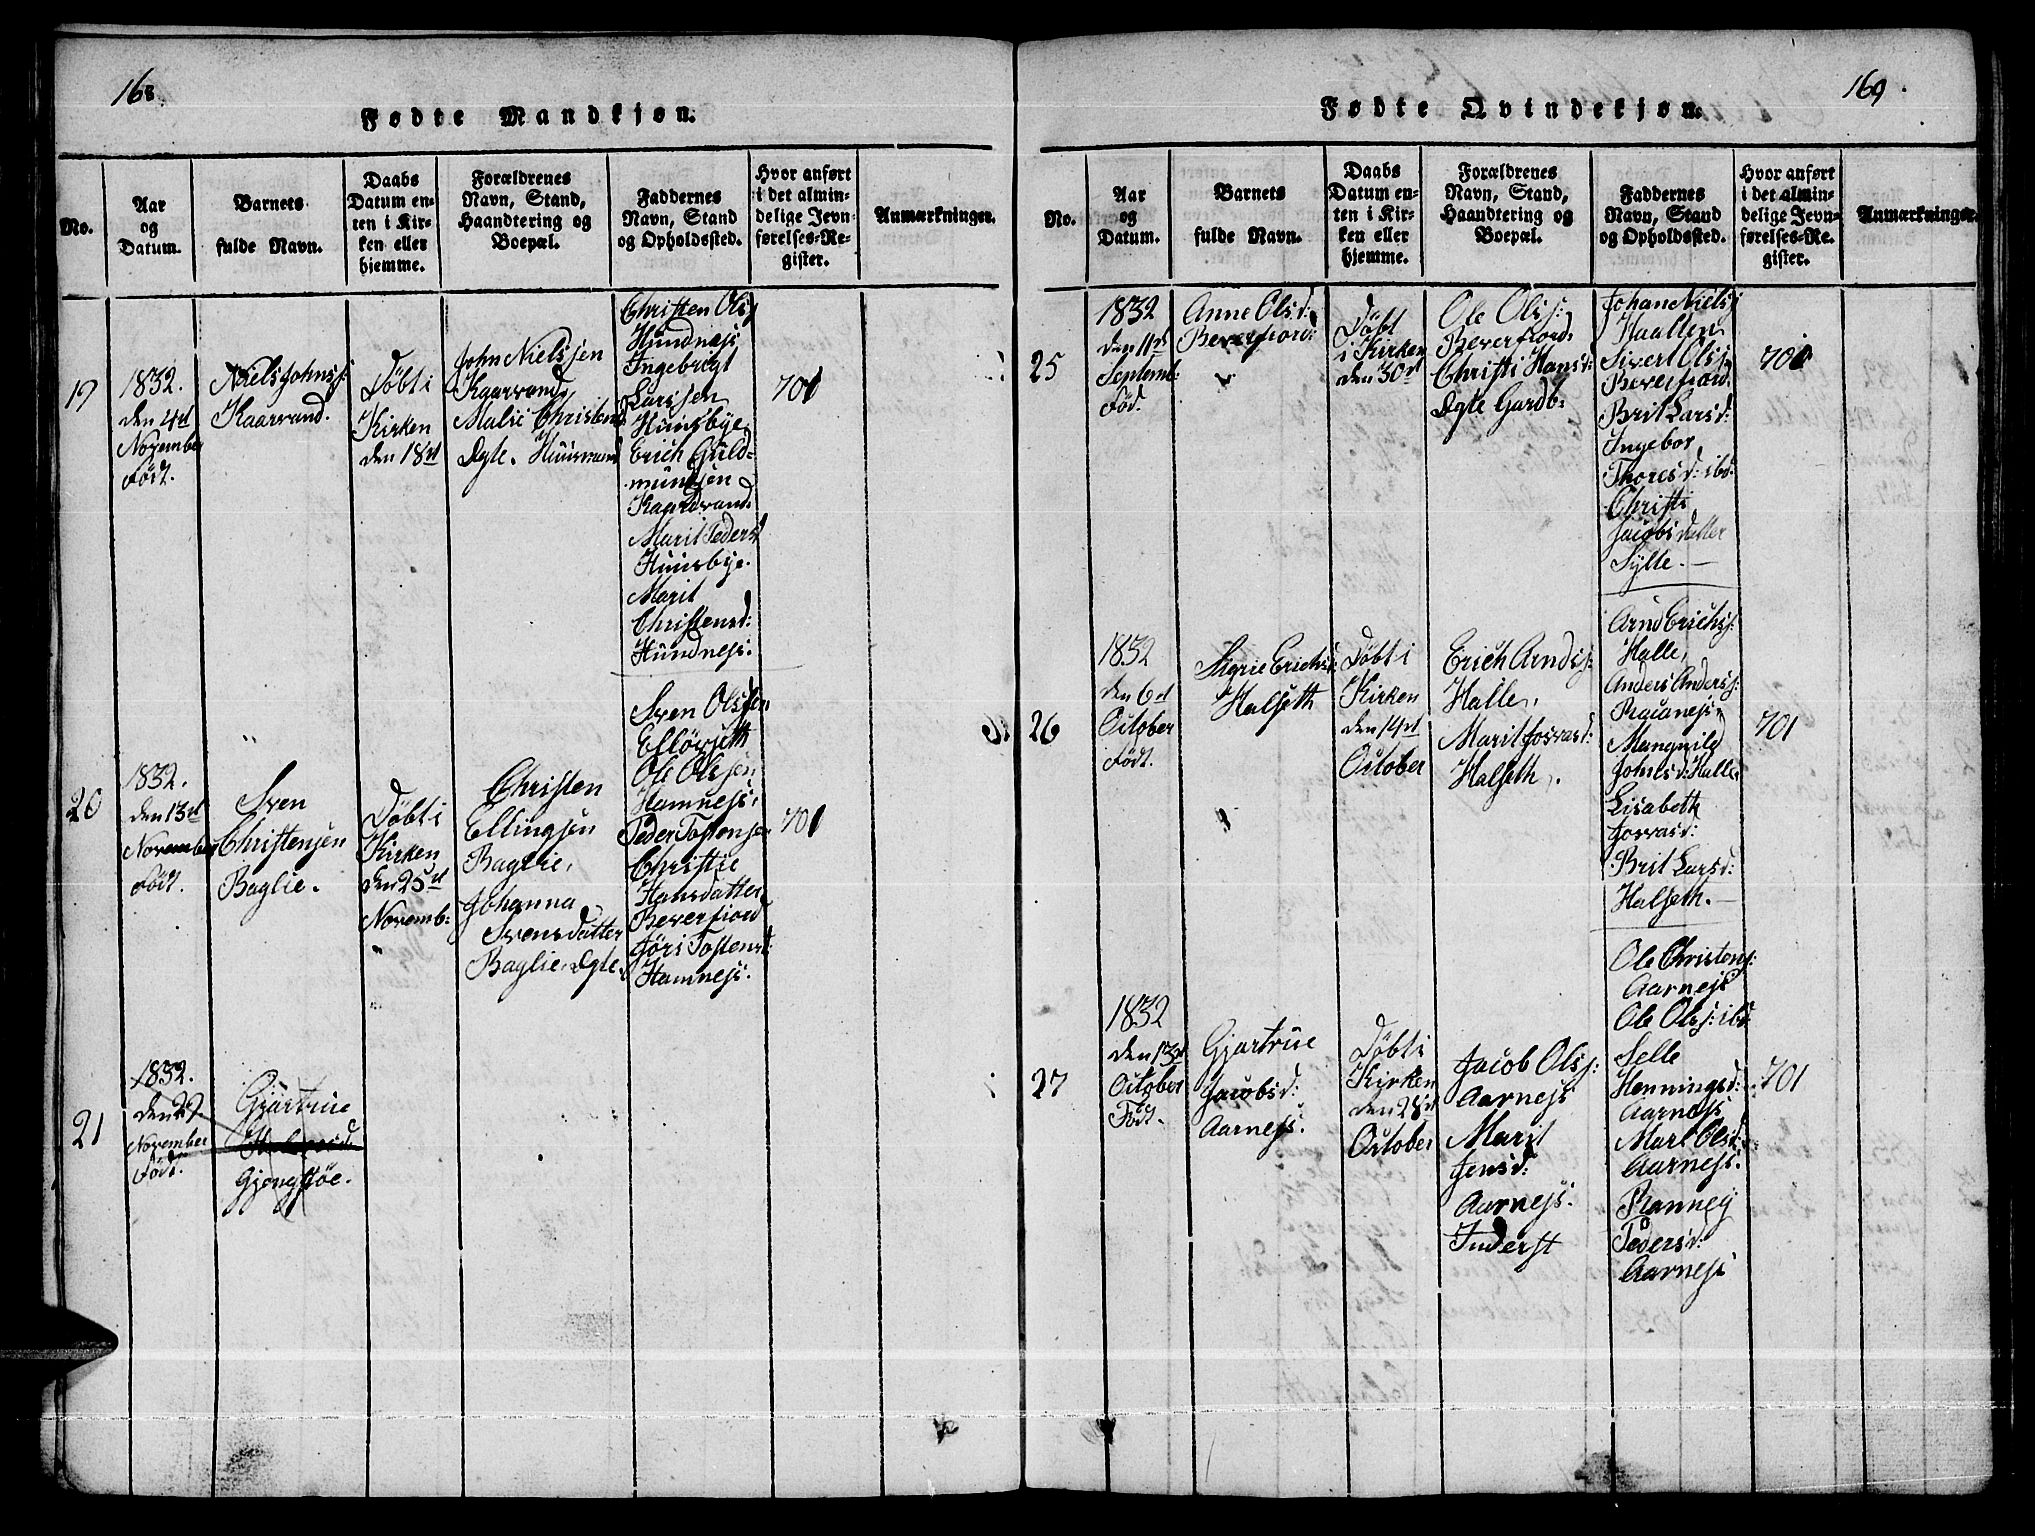 168.
Fødte Mandkjøn.
No.
Aar
og
Datum.
Barnets
fulde Navn.
Daabs
Datum en-
ten i Kir-
ken eller
hjemme.
Forældrenes
Navn, Stand,
Haandtering og
Boepæl.
Faddernes
Navn, Stand
og Opholdssted.
Hvor anført
i det almin-
delige Jevn-
førelses-Re-
gister.
Anmærkninger.
19
1832.
den 4de
November
Født.
Niels Johnss:
Kaarvand.
Döbt i
Kirken
den 18de
John Nielssen
Kaarvand,
Malie Christens
Dgte. Huusvand
Christen Olss
Hundnejs,
Ingebrigt
Larssen
Huusbye,
Erich Guld-
mundsen
Kaardvand.
Marit Pedersd
Huusbye.
Marit
Christensd:
Hundnejs.
701
20
1832.
den 13de
November
Født.
Sven
Christensen
Baglie.
Döbt i
Kirken
den 25de
Novemb:
Christen
Ellingsen
Baglie,
Johanna
Svensdatter
Baglie, Dgte.
Sven Olssen
Ole Olssen
Hamnejs,
Peder Tostensen
Christie
Hansdatter
Beverfiord
Jöri Tostensd:
Hamnejs.
701
21
1832.
den 29
November
Født.
Gjartrue
Gjengstöe.
169.
Fødte Qvindekjøn.
No.
Aar
og
Datum.
Barnets
fulde Navn.
Daabs
Datum en-
ten i Kir-
ken eller
hjemme.
Forældrenes
Navn, Stand,
Haandtering og
Boepæl.
Faddernes
Navn, Stand
og Opholdssted.
Hvor anført
i det almin-
delige Jevn-
førelses-Re-
gister.
Anmærkninger.
25
1832
den 11de
Septemb:
Fød.
Anne Olsd:
Beverfiord:
Döbt
i Kirken
den 30de
Ole Olss:
Beverfiord,
Christi Hansd:
Dgte Gardb:
Johan Nielss
Haallen
Sivert Olss
Beverfiord.
Brit Larsd:
Ingebor
Thoresd: ibd:
Christi
Jacobsdatter
Sylte.
701
26
1832
den 6de
October
Født.
Sigrie Erichsd:
Halseth
Döbt i
Kirken
den 14de
October
Erich Arndss:
Halle,
Marit Josvasd:
Halseth.
Arnd Erichss:
Halle,
Anders Anderss:
Mangnild
Johnsd: Halle
Lisabeth
Josvasd:
Brit Larsd:
Halseth.
701
27
1832
den 13de
October
Født.
Gjartrue
Jacobsd:
Aarnejs.
Döbt i
Kirken
den 28de
October
Jacob Olss:
Aarnejs
Marit
Jensd:
Aarnejs.
Inderst
Ole Christens:
Aarnejs
Ole Olss: ibd
Selle
Henningsd:
Aarnejs
Marit Olsd:
Aarnejs.
Ranney
Pedersd:
Aarnejs
701